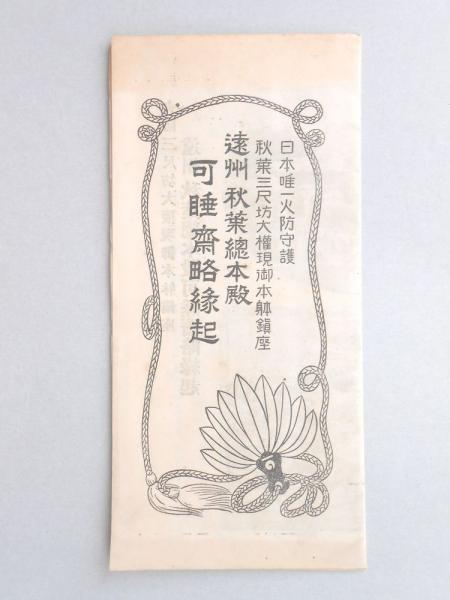 日本唯一火防守護
秋葉三尺坊大權現御本躰鎭座
遠州 秋葉總本殿
可睡齋略緣起